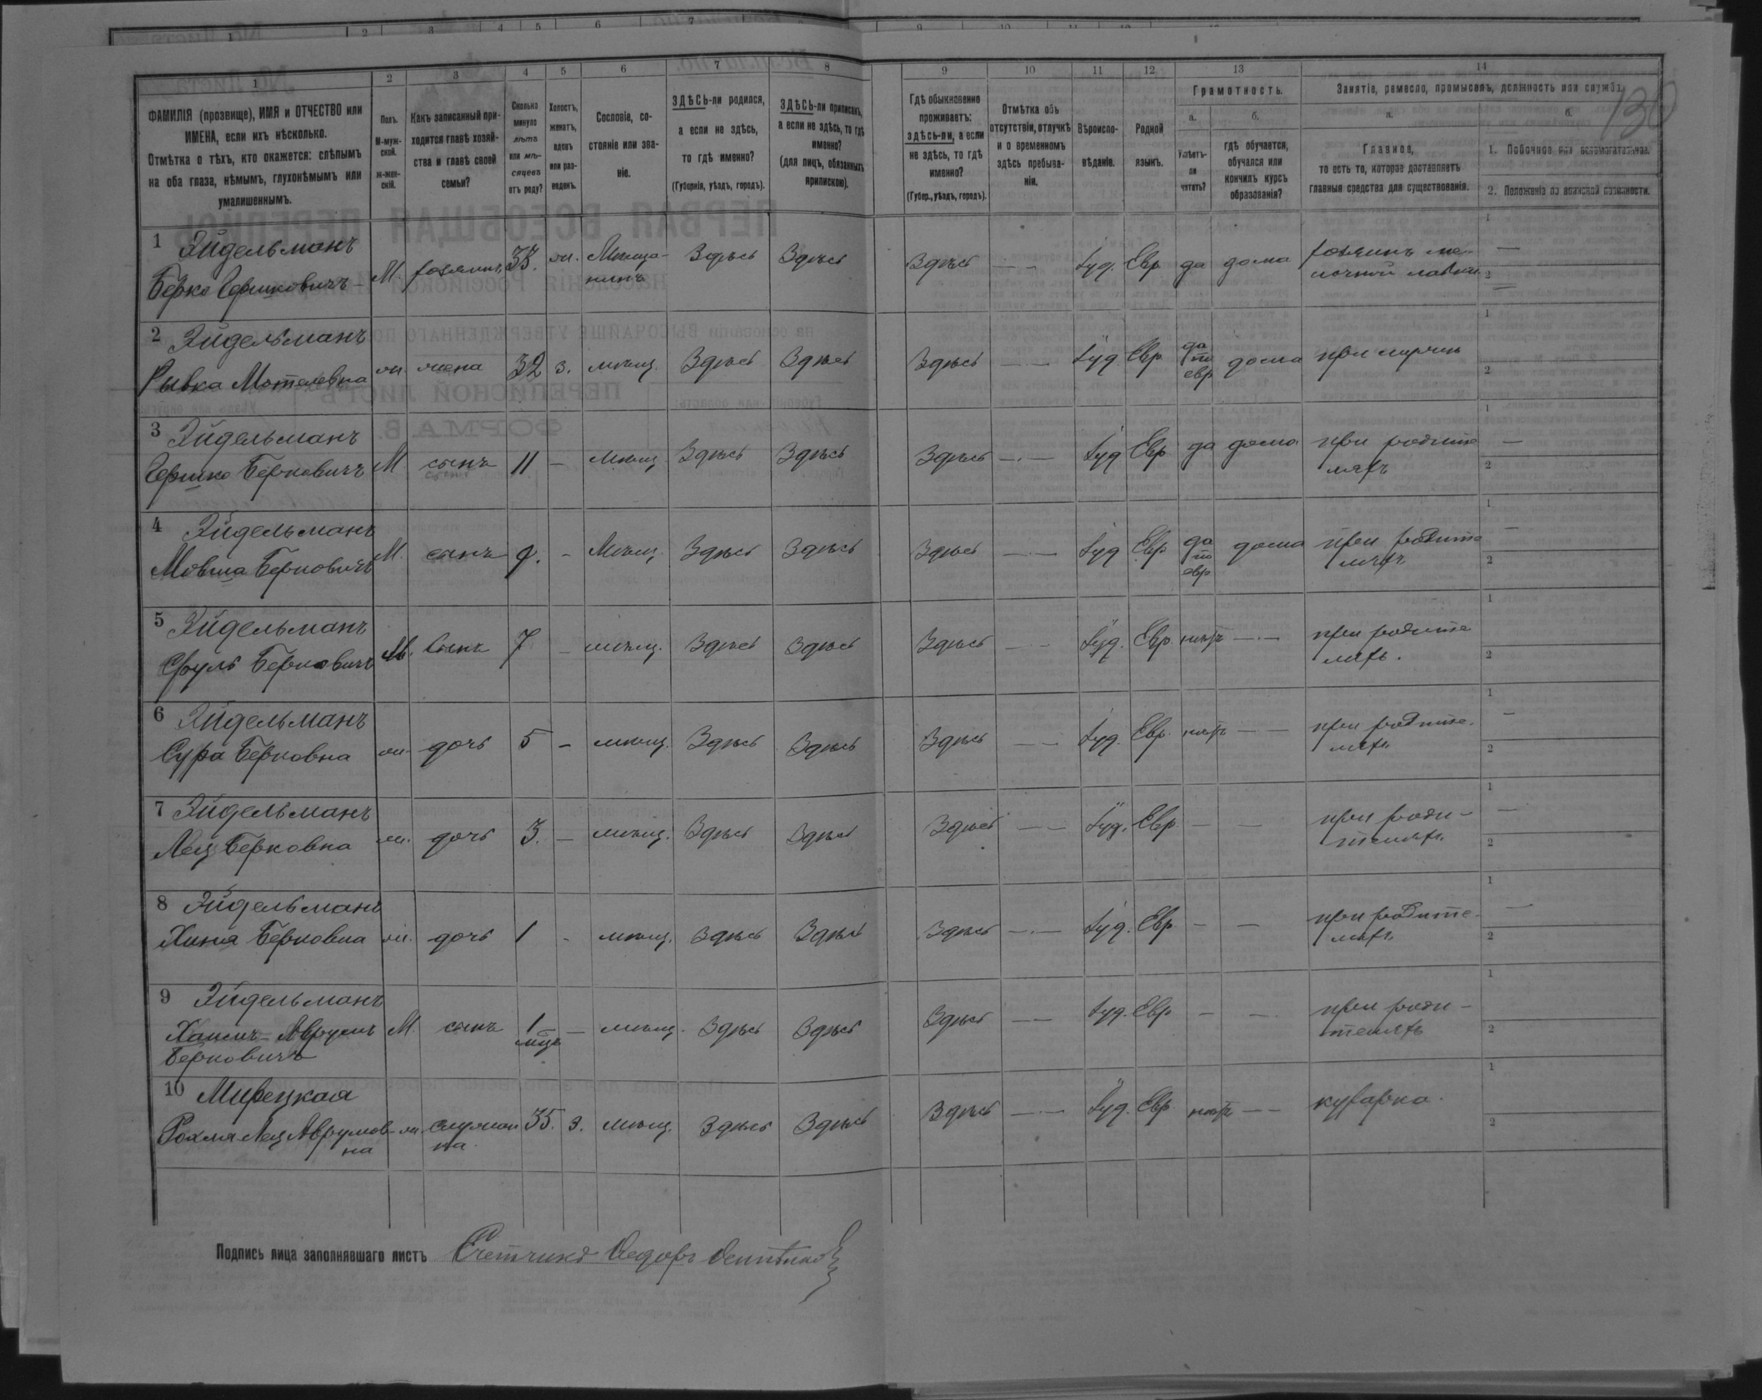 1 2 3 4 5 6 7 8 9 10 11 12 13 14
ФАМИЛІЯ (прозвище), ИМЯ и ОТЧЕСТВО или
ИМЕНА, если ихъ нѣсколько.
Отмѣтка о тѣхъ, кто окажется: слѣпымъ
на оба глаза, нѣмымъ, глухонѣмымъ или
умалишеннымъ.
Полъ.
М-муж-
ской.
ж-жен-
скій.
Какъ записанный при-
ходится главѣ хозяй-
ства и главѣ своей
семьи?
Сколько
минуло
лѣтъ
или мѣ-
сяцевъ
отъ роду?
Холостъ,
женатъ,
вдовъ
или раз-
веденъ.
Сословіе, со-
стояніе или зва-
ніе.
ЗДѢСЬ-ли родился,
а если не здѣсь,
то гдѣ именно?
(Губернія, уѣздъ, городъ).
ЗДѢСЬ-ли приписанъ,
а если не здѣсь, то гдѣ
именно?
(для лицъ, обязанныхъ
припискою).
Гдѣ обыкновенно
проживаетъ:
здѣсь-ли, а если
не здѣсь, то гдѣ
именно?
(Губер., уѣздъ, городъ).
Отмѣтка объ
отсутствіи, отлучкѣ
и о временномъ
здѣсь пребыва-
ніи.
Вѣроиспо-
вѣданіе.
Родной
языкъ.
Грамотность.
а.
Умѣетъ-
ли
читать?
б.
гдѣ обучается,
обучался или
кончилъ курсъ
образованія?
Занятіе, ремесло, промыселъ, должность или служба.
а.
Главное,
то есть то, которое доставляетъ
главныя средства для существованія.
б.
1. Побочное или вспомогательное.
2. Положеніе по воинской повинности.
130
1 Эйдельманъ
Берко Гершковичъ М. хозяинъ 33. ж. Мѣща-
нинъ Здѣсь Здѣсь Здѣсь — Іуд. Евр да дома хозяинъ ме-
лочной лавки
2 Эйдельманъ
Рывка Мотелевна ж жена 32 з. мѣщ. Здѣсь Здѣсь Здѣсь — Іуд Евр да
по
евр дома при мужѣ
3 Эйдельманъ
Гершко Берковичъ М сынъ 11 — мѣщ Здѣсь Здѣсь Здѣсь — Іуд Евр да дома при родите
ляхъ
4 Эйдельманъ
Мовша Берковичъ М. сынъ 9. - Мѣщ. Здѣсь Здѣсь Здѣсь — Іуд Евр да
по
евр дома при родите
ляхъ
5 Эйдельманъ
Сруль Берковичъ М. сынъ 7 - мѣщ. Здѣсь Здѣсь Здѣсь — Іуд. Евр нѣтъ — при родите
ляхъ.
6 Эйдельманъ
Сура Берковна ж. дочь 5 - мѣщ. Здѣсь Здѣсь Здѣсь — Іуд. Евр. нѣтъ — при родите-
ляхъ
7 Эйдельманъ
Лея Берковна ж. дочь 3. — мѣщ. Здѣсь Здѣсь Здѣсь — Іуд. Евр — — при роди-
теляхъ
8 Эйдельманъ
Хиня Берковна ж. дочь 1 - мѣщ. Здѣсь Здѣсь Здѣсь — Іуд. Евр - - при родите-
ляхъ
9 Эйдельманъ
Хаимъ-Аврумъ
Берковичъ М. сынъ 1
мѣс. — мѣщ. Здѣсь Здѣсь Здѣсь — Іуд. Евр - - при роди-
теляхъ
10 Мирецкая
Рохля Лея Аврумов-
на ж. служан
ка. 35. з. мѣщ. Здѣсь Здѣсь Здѣсь — Іуд. Евр нѣтъ — кухарка.
Подпись лица заполнявшаго листъ Счетчикъ Ѳедоръ